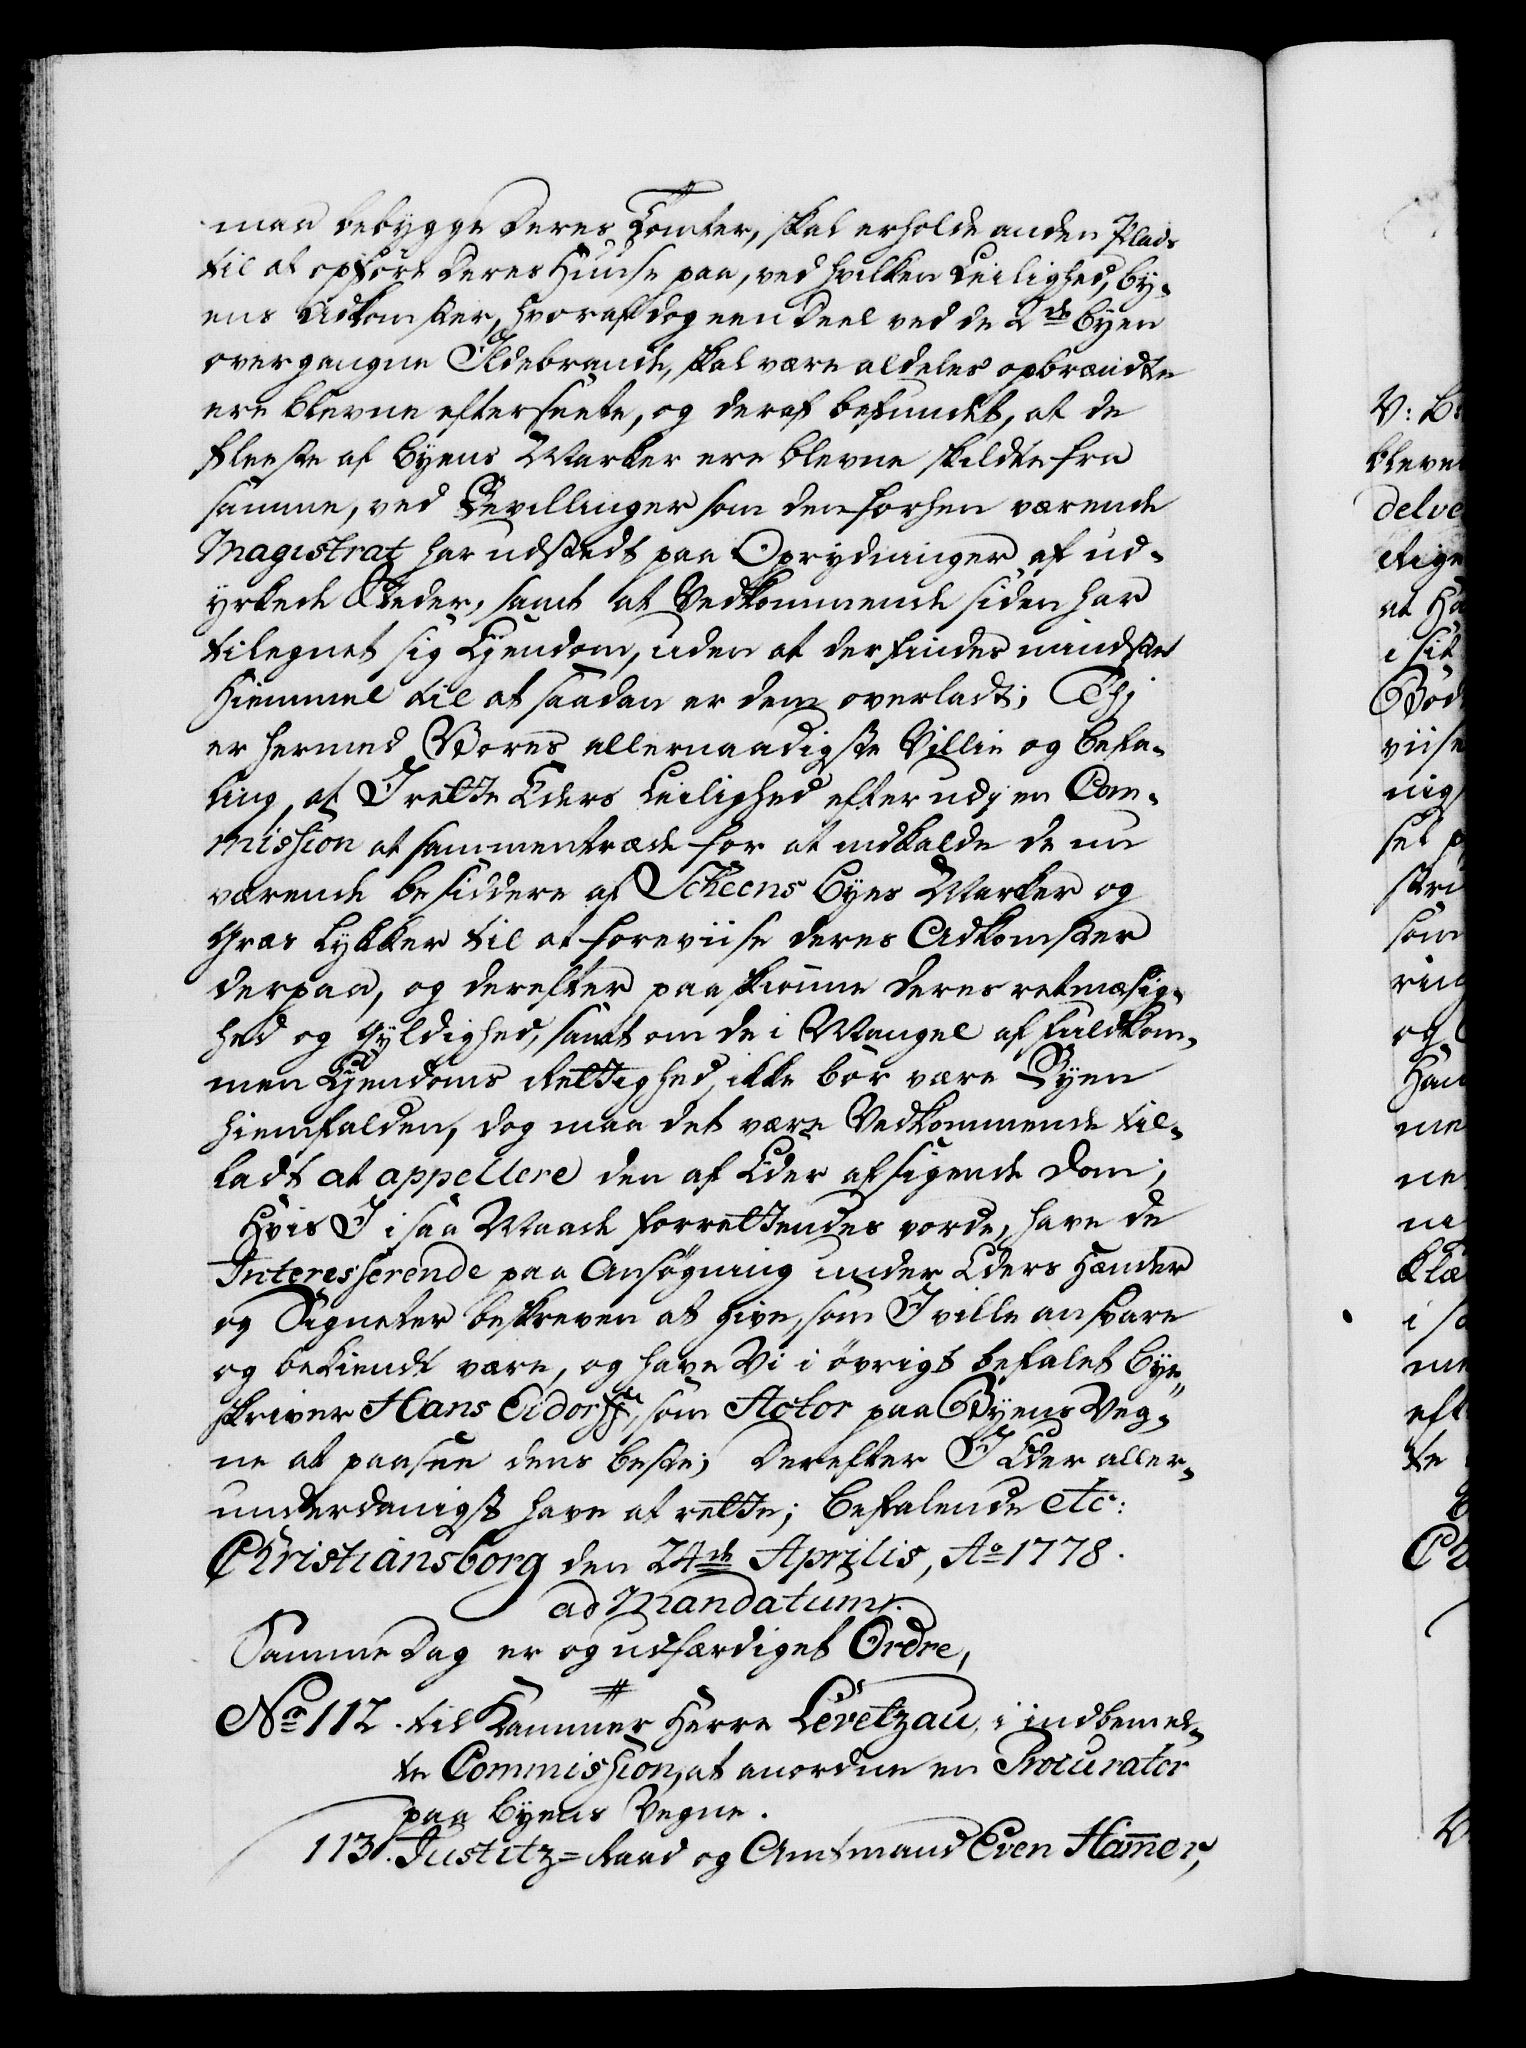 maa bebygge deres Tomter, skal erholde anden Plads
til at opføre deres Huuse paa, ved hvilken Leilighed, by-
ens Adkomster, hvoraf dog een Deel ved de 2de Byen
overgangne Ildebrande, skal være aldeles opbrændte
ere blevne efterseete, og deraf befundet, at de
fleeste af Byens Marker ere blevne skildte fra
samme, ved Bevillinger som den forhen værende
Magistrat har udstedt paa Oprydninger af ud-
yrkede Steder, samt at Vedkommende siden har
tilegnet sig Ejendom, uden at der findes mindste
Hiemmel til at saadan er dem overladt; Thj
er hermed Vores allernaadigste Villie og Befa-
ling, at I rette Eders Leilighed efter udj en Com-
mission at sammentræde for at indkalde de nu
værende besiddere af Scheens Byes Marker og
Græs Lykker til at foreviise deres Adkomster
derpaa, og derefter paaskiønne deres retmæsig-
hed og Gyldighed, samt om de i Mangel af fuldkom-
men Ejendoms Rettighed, ikke bør være Byen
hiemfalden, dog maa det være Vedkommende til-
ladt at appellere den af Eder afsigende Dom;
Hvis I i saa Maade forrettendes vorde, have de
Interesserende paa Ansøgning under Eders Hænder
og Signeter beskreven at give, som I ville ansvare
og bekiendt være, og have Vi i øvrigt befalet Bye-
skriver Hans Eidorff, som Actor paa Byens Veg-
ne at paasee dens beste; Derefter I Eder aller-
underdanigst have at rette; Befalende etc:
Christiansborg den 24de Aprilis, Ao 1778.
ad Mandatum.
Samme Dag er og udfærdiget Ordre,
No 112. til Kammer Herre Levetzau, i indbemel-
te Commission, at anordne en Procurator
paa Byens Vegne.
113. Justitz-Raad og Amtmand Even Hamer,